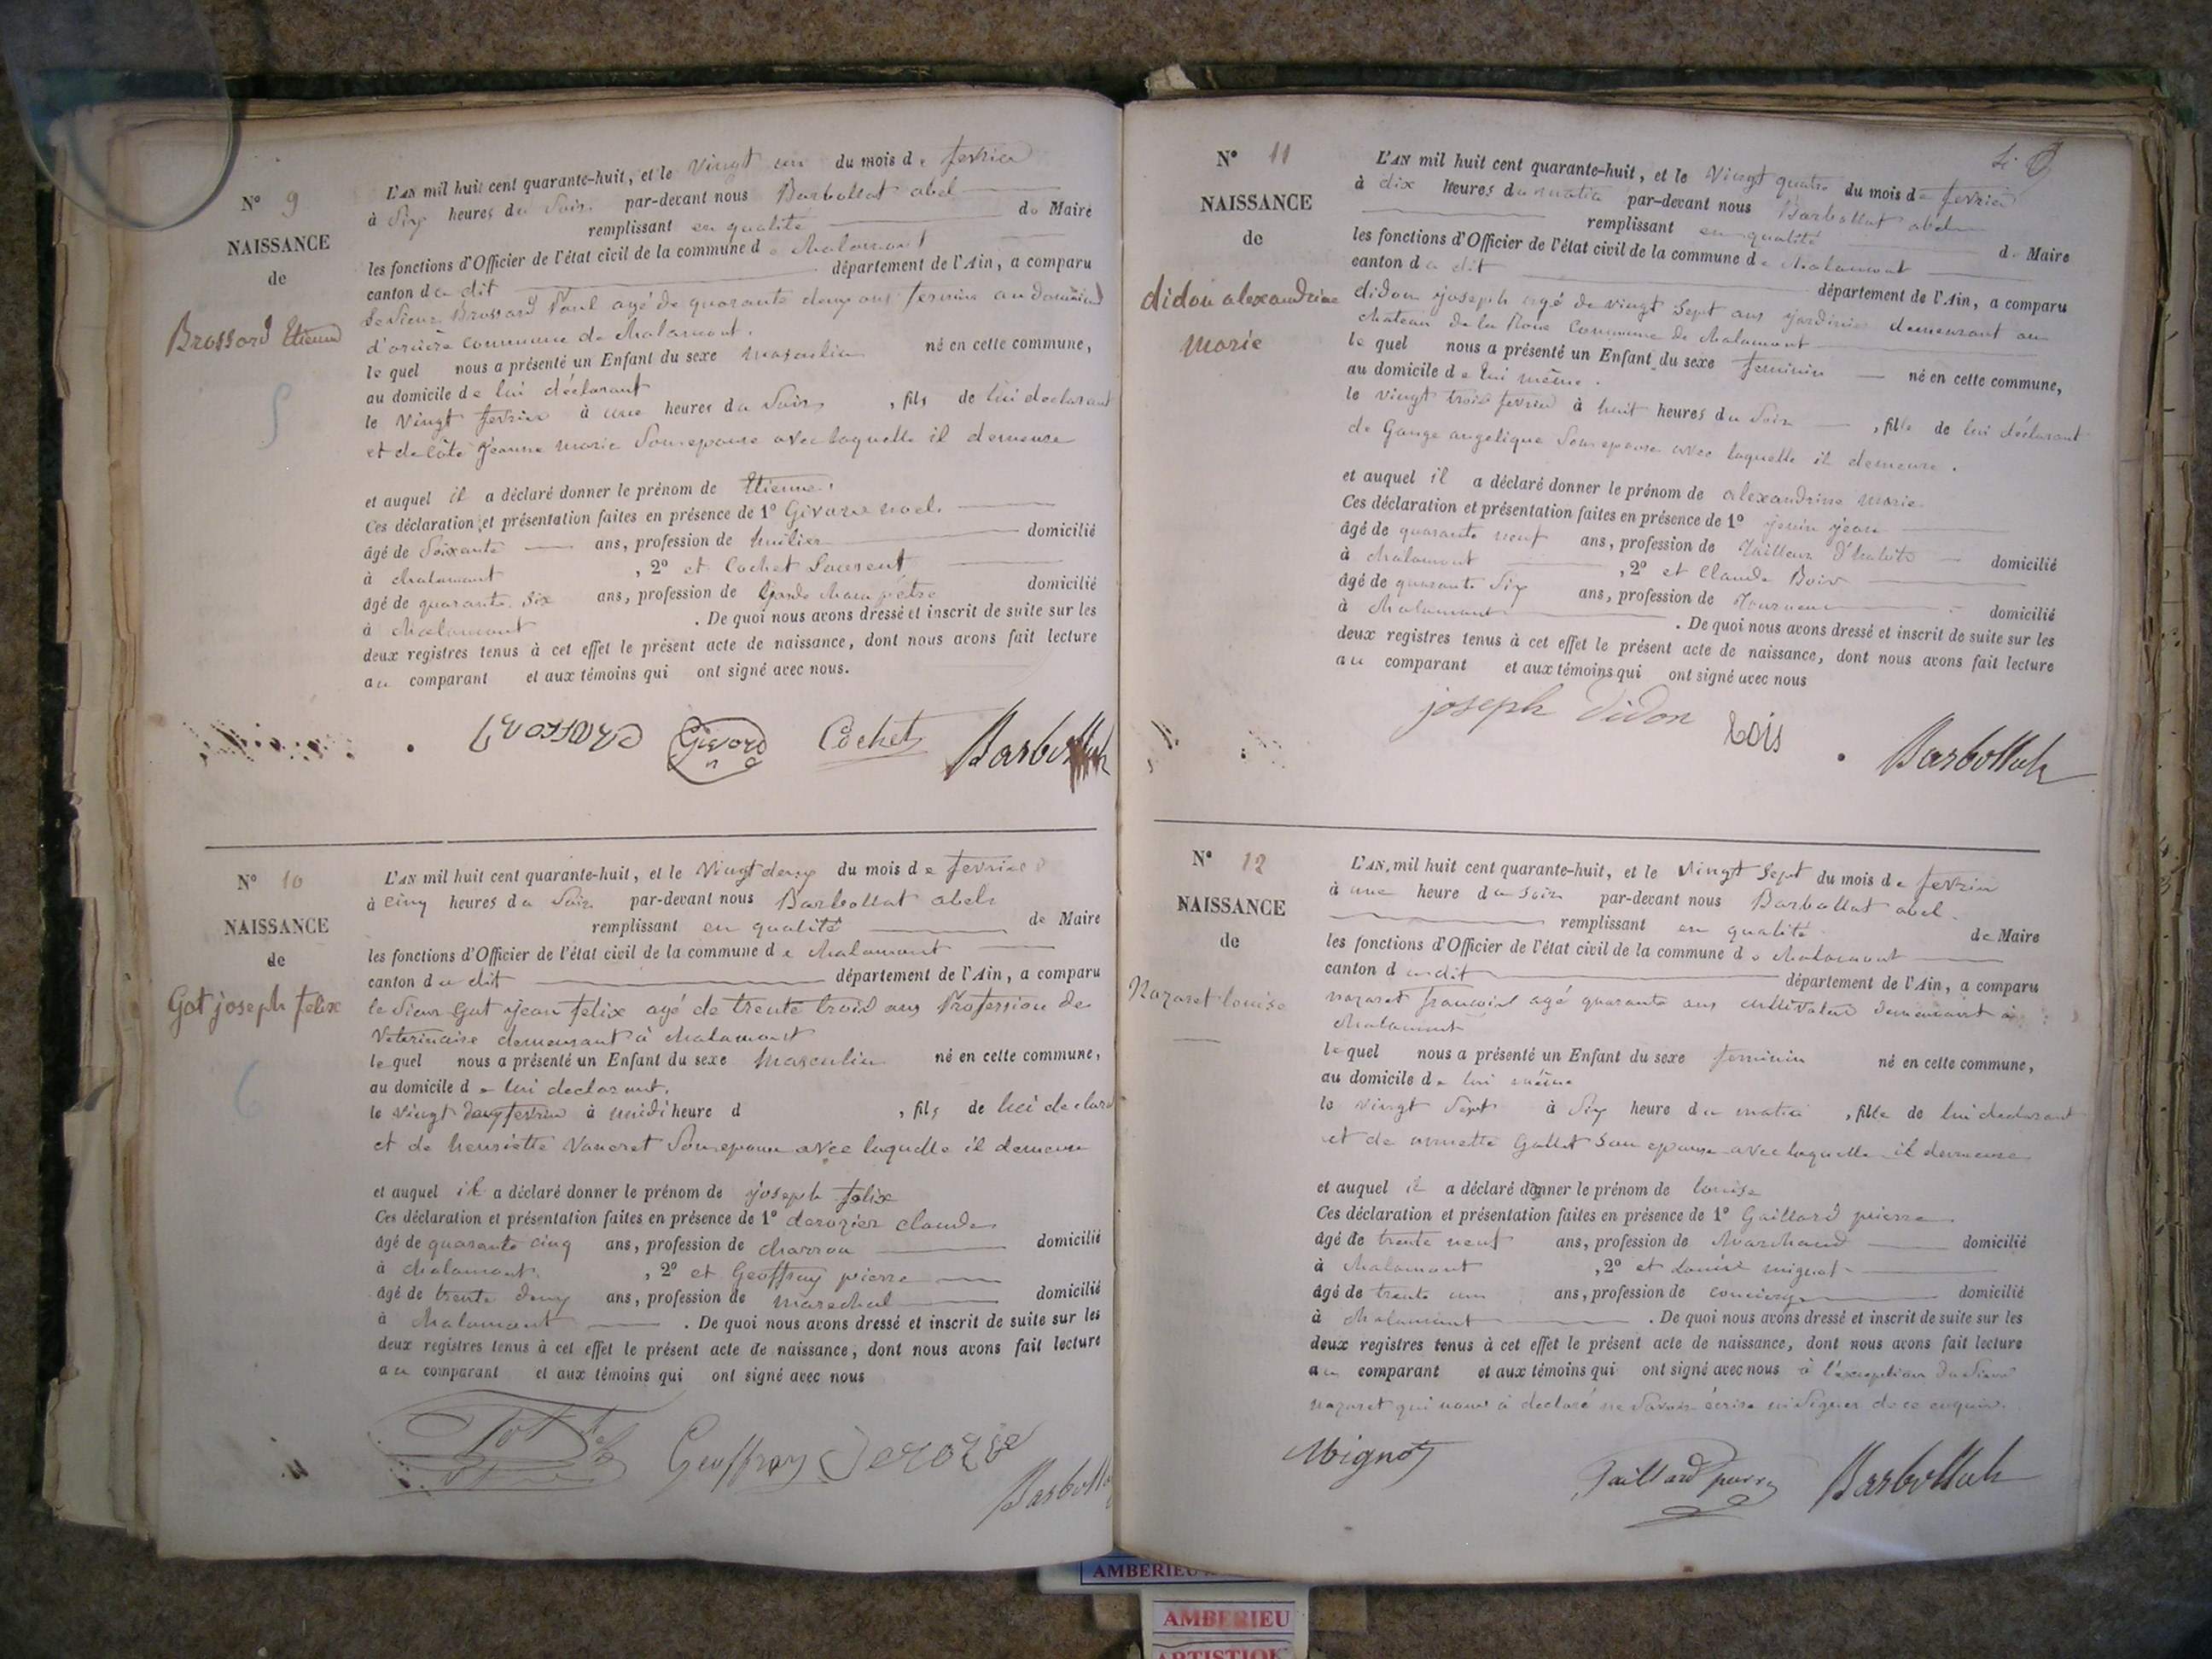 N° 9
NAISSANCE
de
Brossard Etienne
L'AN mil huit cent quarante-huit, et le Vingt un du mois de fevrier
à Six heures du Soir par-devant nous Barbollat abel
remplissant en qualité de Maire
les fonctions d'Officier de l'état civil de la commune de chalamont
canton du dit département de l'Ain, a comparu
le Sieur Brossard Paul agé de quarante deux ans fermier au domaine
commune de chalamont.
le quel nous a présenté un Enfant du sexe masculin né en cette commune,
au domicile de lui déclarant
le Vingt fevrier à une heures du Soir, fils de lui declarant
et de Côte Jeanne marie Son epouse avec laquelle il demeure
et auquel il a déclaré donner le prénom de Etienne.
Ces déclaration et présentation faites en présence de 1° Givord noel
âgé de Soixante ans, profession de huilier domicilié
à chalamont, 2° et Cochet Laurent
âgé de quarante Six ans, profession de Garde champetre domicilié
à chalamont. De quoi nous avons dressé et inscrit de suite sur les
deux registres tenus à cet effet le présent acte de naissance, dont nous avons fait lecture
au comparant et aux témoins qui ont signé avec nous.
Givord Cochet Barbollat
N° 10
NAISSANCE
de
Got joseph felix
6
L'AN mil huit cent quarante-huit, et le Vingt deux du mois de fevrier
à cinq heures du Soir par-devant nous Barbollat abel
remplissant en qualité de Maire
les fonctions d'Officier de l'état civil de la commune de chalamont
canton du dit département de l'Ain, a comparu
le Sieur Got jean felix agé de trente trois ans Profession de
Veterinaire demeurant à chalamont
le quel nous a présenté un Enfant du sexe masculin né en cette commune,
au domicile de lui declarant.
le Vingt deux fevrier à midi heure d, fils de lui declarant
et de henriette Vancret Son epouse avec laquelle il demeure
et auquel il a déclaré donner le prénom de joseph felix
Ces déclaration et présentation faites en présence de 1° derozier claude
âgé de quarante cinq ans, profession de charron domicilié
à chalamont, 2° et Geoffray pierre
âgé de trente deux ans, profession de marechal domicilié
à chalamont. De quoi nous avons dressé et inscrit de suite sur les
deux registres tenus à cet effet le présent acte de naissance, dont nous avons fait lecture
au comparant et aux témoins qui ont signé avec nous
Geoffray Derozie Barbollat
N° 11
NAISSANCE
de
didon alexandrine
marie
L'AN mil huit cent quarante-huit, et le Vingt quatre du mois de fevrier
à dix heures du matin par-devant nous Barbollat abel
remplissant en qualité de Maire
les fonctions d'Officier de l'état civil de la commune de chalamont
canton du dit département de l'Ain, a comparu
didon joseph agé de vingt Sept ans jardinier demeurant au
chateau de la Roue Commune de chalamont
le quel nous a présenté un Enfant du sexe feminin né en cette commune,
au domicile de lui même.
le vingt trois fevrier à huit heures du Soir, fille de lui déclarant
de Gauge angelique Son epouse avec laquelle il demeure.
et auquel il a déclaré donner le prénom de alexandrine marie
Ces déclaration et présentation faites en présence de 1° jean
âgé de quarante neuf ans, profession de Tailleur d'habits domicilié
à chalamont, 2° et Claude Bois
âgé de quarante Six ans, profession de Tourneur domicilié
à chalamont. De quoi nous avons dressé et inscrit de suite sur les
deux registres tenus à cet effet le présent acte de naissance, dont nous avons fait lecture
au comparant et aux témoins qui ont signé avec nous
joseph didon bois Barbollat
N° 12
NAISSANCE
de
Nazaret louise
L'AN mil huit cent quarante-huit, et le Vingt Sept du mois de fevrier
à une heure du soir par-devant nous Barbollat abel
remplissant en qualité de Maire
les fonctions d'Officier de l'état civil de la commune de chalamont
canton dudit département de l'Ain, a comparu
nazaret francois agé quarante ans cultivateur demeurant à
chalamont
le quel nous a présenté un Enfant du sexe feminin né en cette commune,
au domicile de lui même
le vingt Sept à Six heure du matin, fille de lui declarant
et de annette Gallet Son epouse avec laquelle il demeure
et auquel il a déclaré donner le prénom de louise
Ces déclaration et présentation faites en présence de 1° Gaillard pierre
âgé de trente neuf ans, profession de Marchand domicilié
à chalamont, 2° et Louis mignot
âgé de trente un ans, profession de concierge domicilié
à chalamont. De quoi nous avons dressé et inscrit de suite sur les
deux registres tenus à cet effet le présent acte de naissance, dont nous avons fait lecture
au comparant et aux témoins qui ont signé avec nous à l'exception du Sieur
nazaret qui nous à declaré ne Savoir écrire ni Signer de ce enquis.
Mignot Gaillard pierre Barbollat
AMBERIEU
AMBERIEU
ARTISTIQ